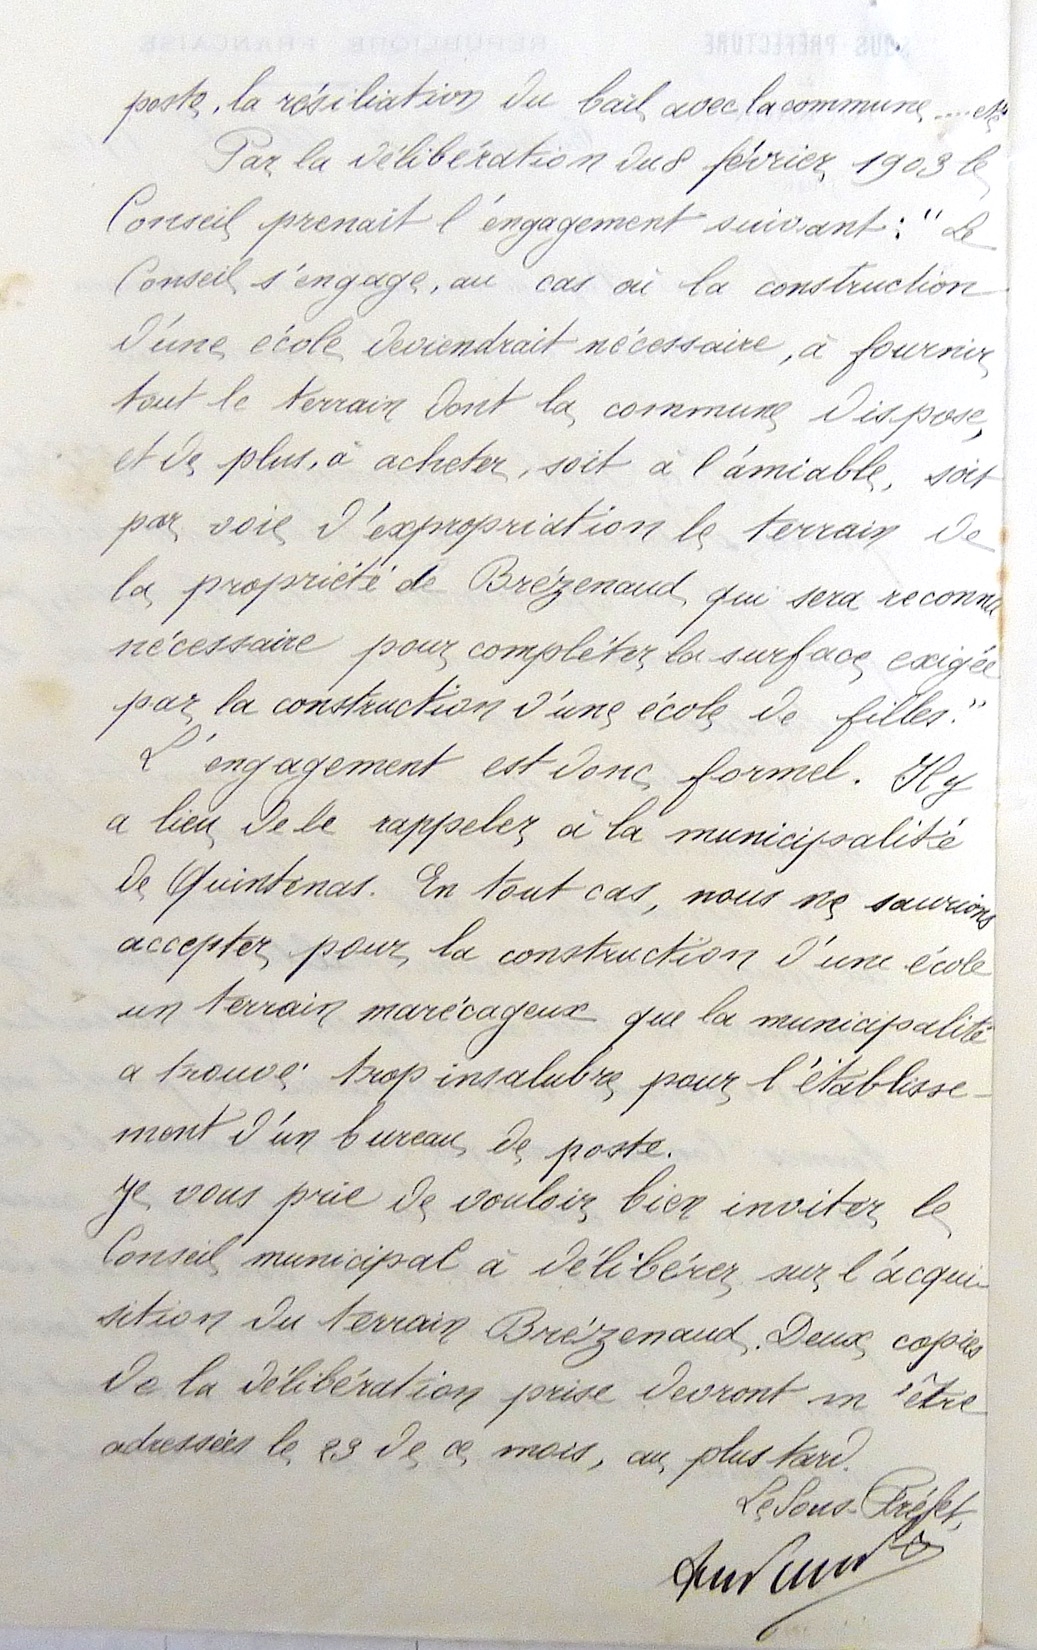 poste, la résiliation du bail avec la commune .... etc
Par la délibération du 8 février 1903 le
Conseil prenait l'engagement suivant : "Le
Conseil s'engage, au cas où la construction
d'une école deviendrait nécessaire, à fournir
tout le terrain dont la commune dispose,
et de plus, à acheter, soit à l'amiable, soit
par voie d'expropriation le terrain de
la propriété de Brézenaud qui sera reconnu
nécessaire pour compléter la surface exigée
par la construction d'une école de filles."
L'engagement est donc formel. Il y
a lieu de le rappeler à la municipalité
de Quintenas. En tout cas, nous ne saurions
accepter pour la construction d'une école
un terrain marécageux que la municipalité
a trouvé trop insalubre pour l'établisse-
ment d'un bureau de poste.
Je vous prie de vouloir bien inviter le
Conseil municipal à délibérer sur l'acqui-
sition du terrain Brézenaud. Deux copies
de la délibération prise devront m'être
adressées le 29 de ce mois, au plus tard.
Le Sous-Préfet,
SOUS PRÉFECTURE
RÉPUBLIQUE FRANÇAISE